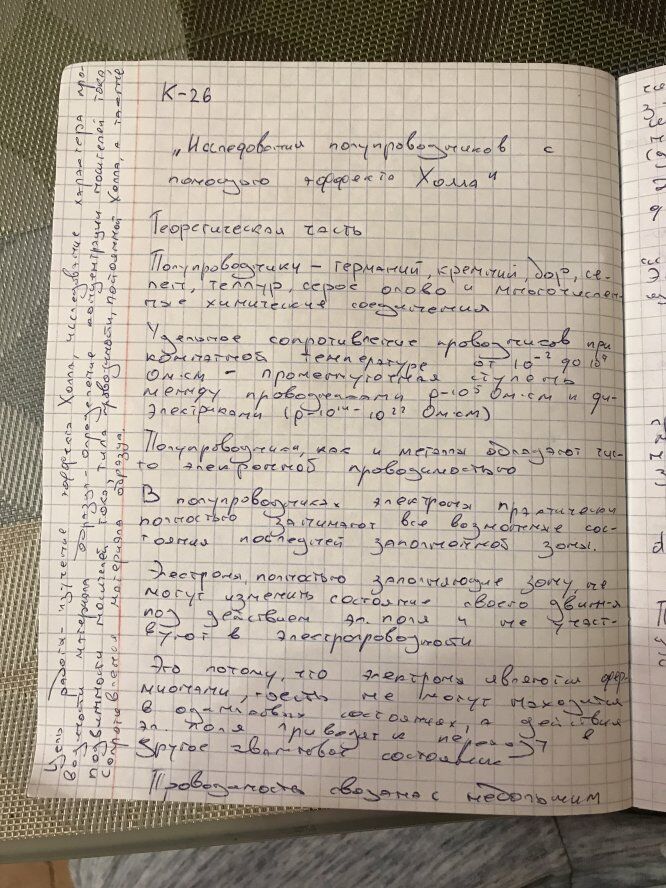 К-26
„Исследовании полупроводников с
помощью эффекта Холла"
Теоретическая часть
Полупроводники – германий, кремний, бор, се-
лен, теллур, серое олово и многочислен-
ные химические соединения
Удельное сопротивление проводников при
комнатной температуре от 10⁻² до 10⁹
Ом·см – промежуточная ступень
между проводниками ρ=10⁻⁵ Ом·см и ди-
электриками (ρ=10¹⁴ – 10²² Ом·см)
Полупроводники, как и металлы обладают чис-
то электронной проводимостью
В полупроводниках электроны практически
полностью занимают все возможные сос-
тояния последней заполненной зоны.
Электроны, полностью заполняющие зону, не
могут изменить состояние своего движ-я
под действием эл. поля и не участ-
вуют в электропроводности
Это потому, что электроны являются фер-
мионами, т.есть не могут находится
в одинаковых состояниях, а действия
эл. поля приводят к переходу в
другое квантовое состояние
Проводимость связана с небольшим
Цель работы – изучение эффекта Холла, исследование характера про-
водимости материала образца – определение концентрации носителей тока,
подвижности носителей тока, типа проводимости, постоянной Холла, а также
сопротивления материала образца.